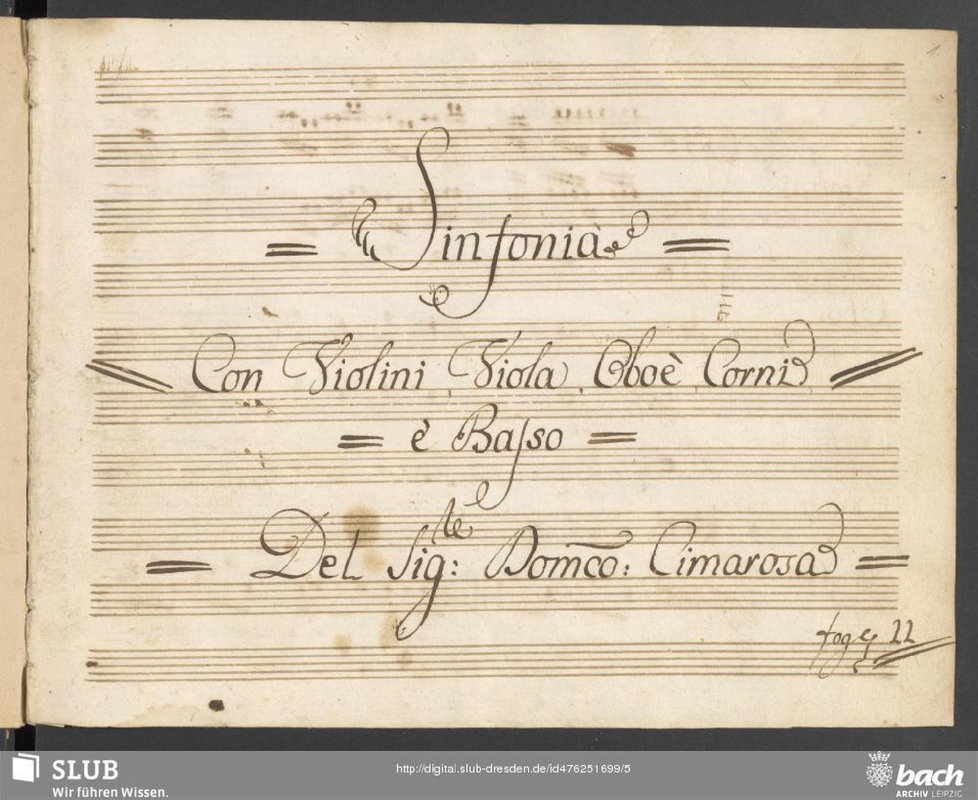 1.
= Sinfonia =
Con Violini, Viola, Oboè, Corni
= è Basso =
= Del Sig:te Domco: Cimarosa =
fog. 11
SLUB
Wir führen Wissen.
http://digital.slub-dresden.de/id476251699/5
bach
ARCHIV LEIPZIG